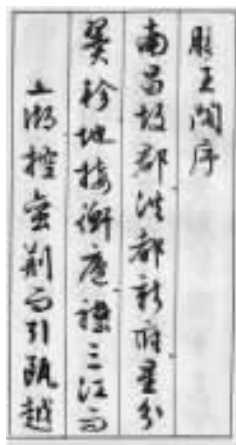 滕王阁序
南昌故郡洪都新府星分
翼轸地接衡庐襟三江而
五湖控蛮荆而引瓯越